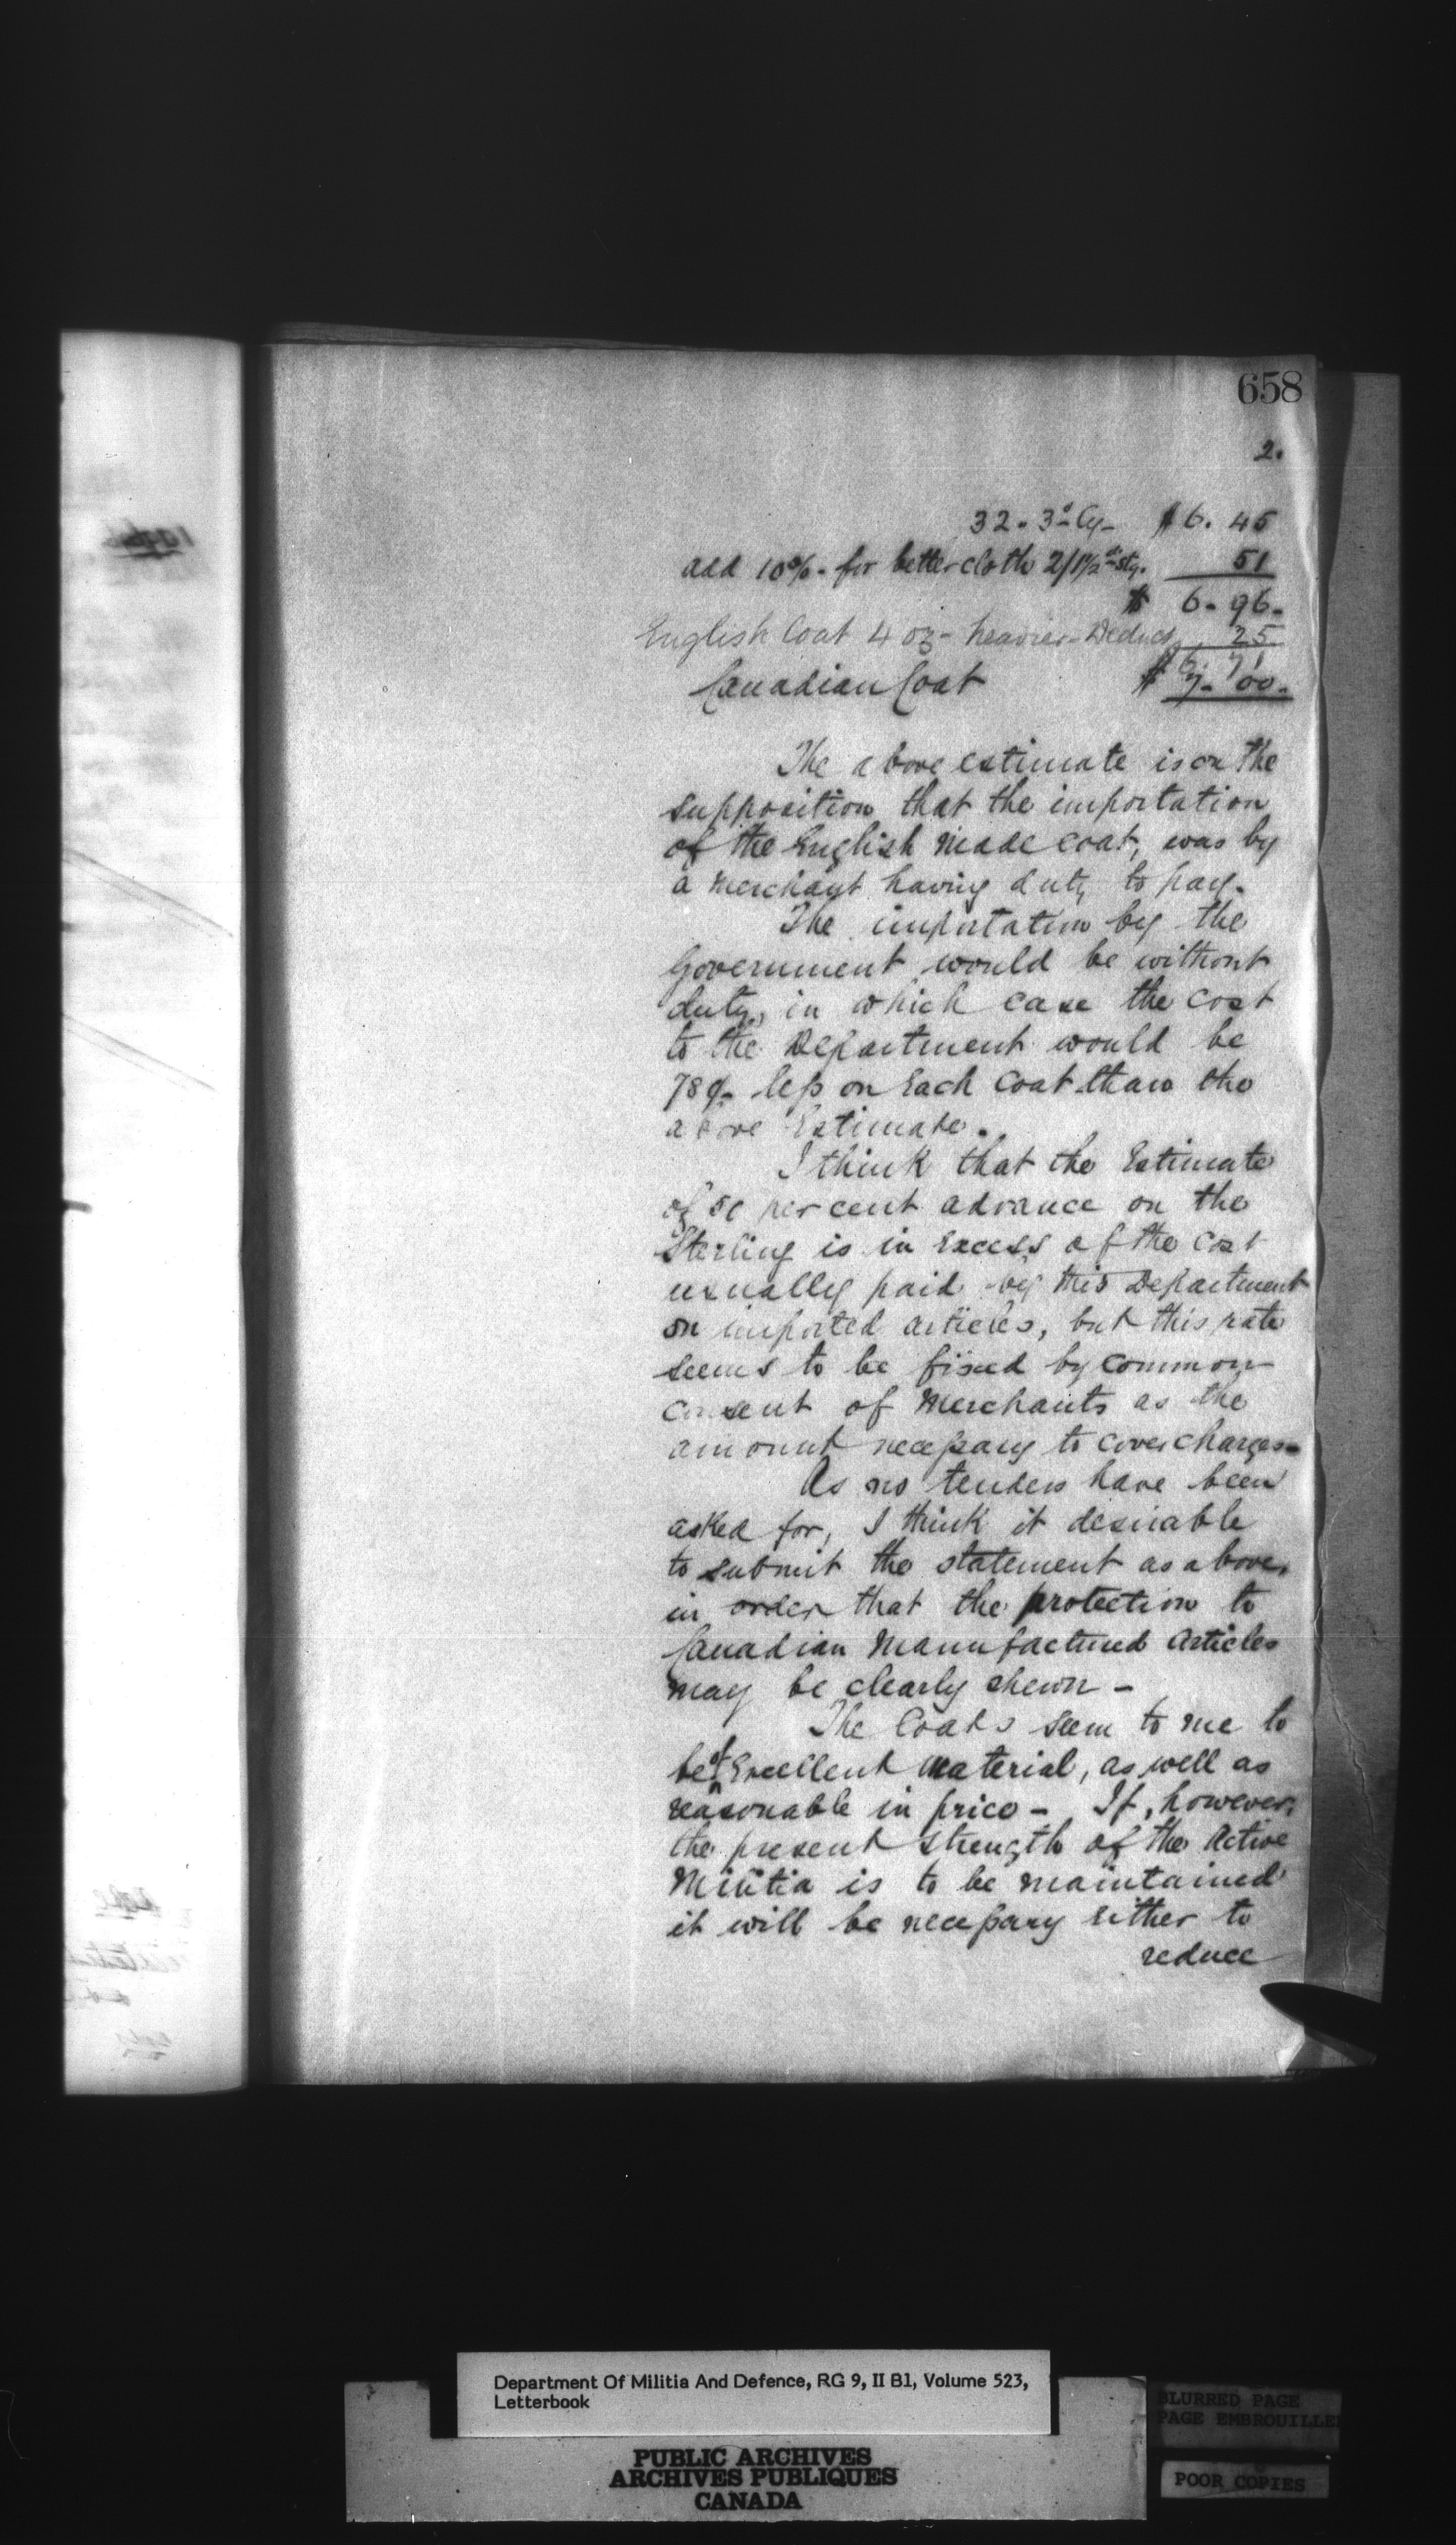 658
2.
32. 3d Cy - $6. 45
add 10%. for better cloth 2/1½ d stg. 51
$ 6. 96.
English Coat 4 oz - heavier - Deduct 25
$ 6. 71
Canadian Coat $ 7. 00.
The above estimate is on the
supposition that the importation
of the English made coat, was by
a merchant having duty to pay.
The importation by the
Government would be without
duty, in which case the cost
to the Department would be
78¢ less on Each Coat than the
above Estimate.
I think that the Estimate
of 50 per cent advance on the
Sterling is in Excess of the cost
usually paid by this Department
on imported articles, but this rate
seems to be fixed by common
consent of Merchants as the
amount necessary to cover charges -
As no tenders have been
asked for, I think it desirable
to submit the statement as above,
in order that the protection to
Canadian Manufactured Articles
may be clearly shewn -
The Coats seem to me to
be of Excellent Material, as well as
reasonable in price - If, however,
the present strength of the Active
Militia is to be maintained
it will be necessary either to
reduce
Department Of Militia And Defence, RG 9, II B1, Volume 523,
Letterbook
PUBLIC ARCHIVES
ARCHIVES PUBLIQUES
CANADA
BLURRED PAGE
PAGE EMBROUILLE
POOR COPIES